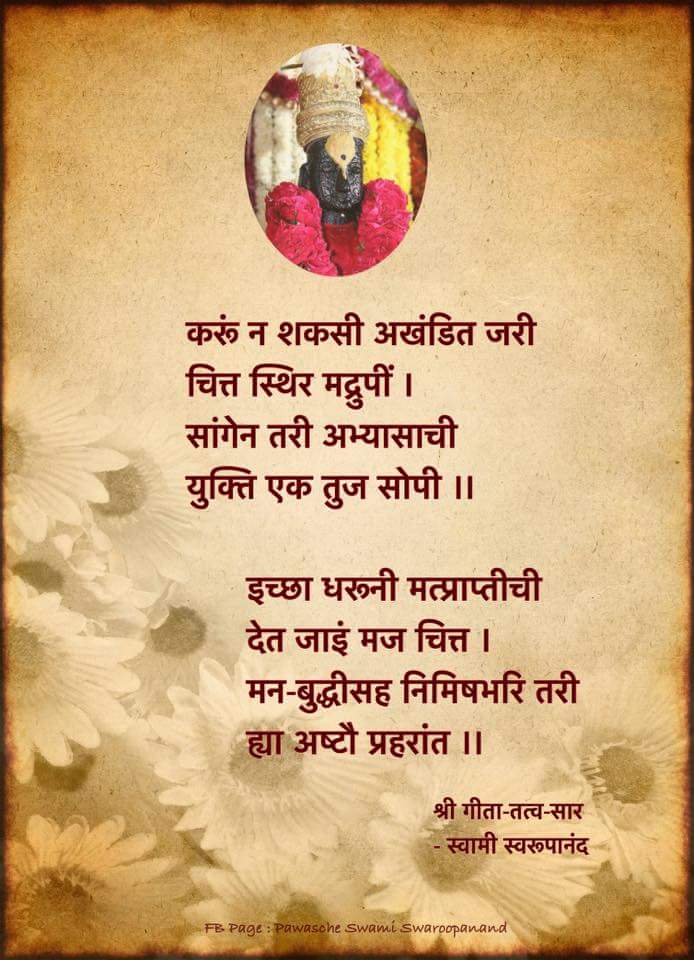 करूं न शकसी अखंडित जरी
चित्त स्थिर मद्रुपीं ।
सांगेन तरी अभ्यासाची
युक्ति एक तुज सोपी ॥
इच्छा धरूनी मत्प्राप्तीची
देत जाइं मज चित्त ।
मन-बुद्धीसह निमिषभरि तरी
ह्या अष्टौ प्रहरांत ॥
श्री गीता-तत्व-सार
- स्वामी स्वरूपानंद
FB Page : Pawasche Swami Swaroopanand